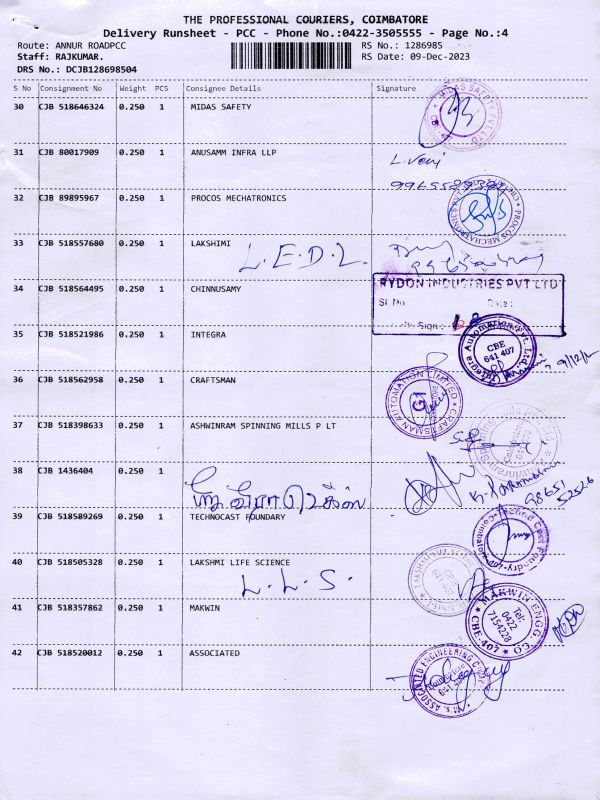 THE PROFESSIONAL COURIERS, COIMBATORE
Delivery Runsheet - PCC - Phone No.:0422-3505555 - Page No.:4
Route: ANNUR ROADPCC RS No.: 1286985
Staff: RAJKUMAR. RS Date: 09-Dec-2023
DRS No.: DCJB128698504
S No Consignment No Weight PCS Consignee Details Signature
30 CJB 518646324 0.250 1 MIDAS SAFETY
31 CJB 80017909 0.250 1 ANUSAMM INFRA LLP
L. Veni
32 CJB 89895967 0.250 1 PROCOS MECHATRONICS
PROCOS MECHATRONICS
33 CJB 518557680 0.250 1 LAKSHIMI
L.E.D.L.
34 CJB 518564495 0.250 1 CHINNUSAMY
RYDON INDUSTRIES PVT LTD
Sl. No Date :
Sign :
35 CJB 518521986 0.250 1 INTEGRA
Integra Automation Pvt. Ltd.
CBE
641 407
36 CJB 518562958 0.250 1 CRAFTSMAN
CRAFTSMAN AUTOMATION LIMITED
37 CJB 518398633 0.250 1 ASHWINRAM SPINNING MILLS P LT
38 CJB 1436404 0.250 1
98651
52526
39 CJB 518589269 0.250 1 TECHNOCAST FOUNDARY
40 CJB 518505328 0.250 1 LAKSHMI LIFE SCIENCE
L.L.S.
41 CJB 518357862 0.250 1 MAKWIN
MAKWIN ENGG CO
CBE-407
Tel:
0422
7154228
42 CJB 518520012 0.250 1 ASSOCIATED